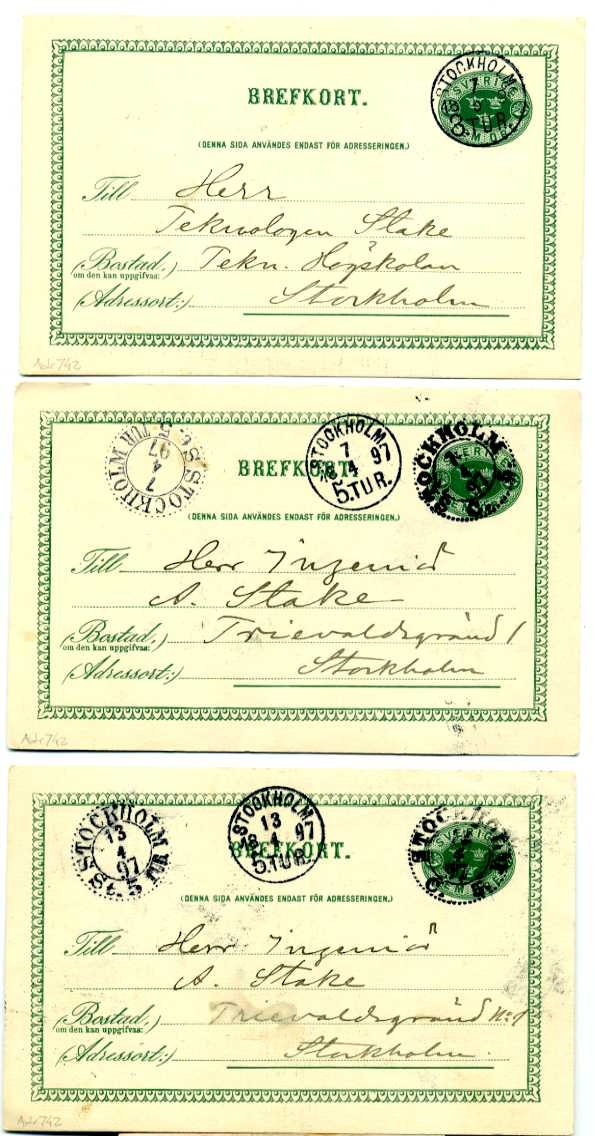 STOCKHOLM
7
5. TUR.
SVERIGE
BREFKORT.
(DENNA SIDA ANVÄNDES ENDAST FÖR ADRESSERINGEN.)
Till Herr
Teknologen Stake
(Bostad,) Tekn. Högskolan
om den kan uppgifvas:
(Adressort:) Stockholm
Adr 742
STOCKHOLM
7
4
97
5 TUR
STOCKHOLM
7
18 4 97
5. TUR.
STOCKHOLM
BREFKORT.
(DENNA SIDA ANVÄNDES ENDAST FÖR ADRESSERINGEN.)
Till Herr Ingeniör
A. Stake
(Bostad,) Trievaldsgränd 1
om den kan uppgifvas:
(Adressort:) Stockholm
Adr 742
STOCKHOLM
13
4
97
STOCKHOLM
13
18 4 97
5. TUR.
STOCKHOLM
SVERIGE
BREFKORT.
(DENNA SIDA ANVÄNDES ENDAST FÖR ADRESSERINGEN.)
Till Herr Ingeniör
A. Stake
(Bostad,) Trievaldsgränd No 1
om den kan uppgifvas:
(Adressort:) Stockholm.
Adr 742